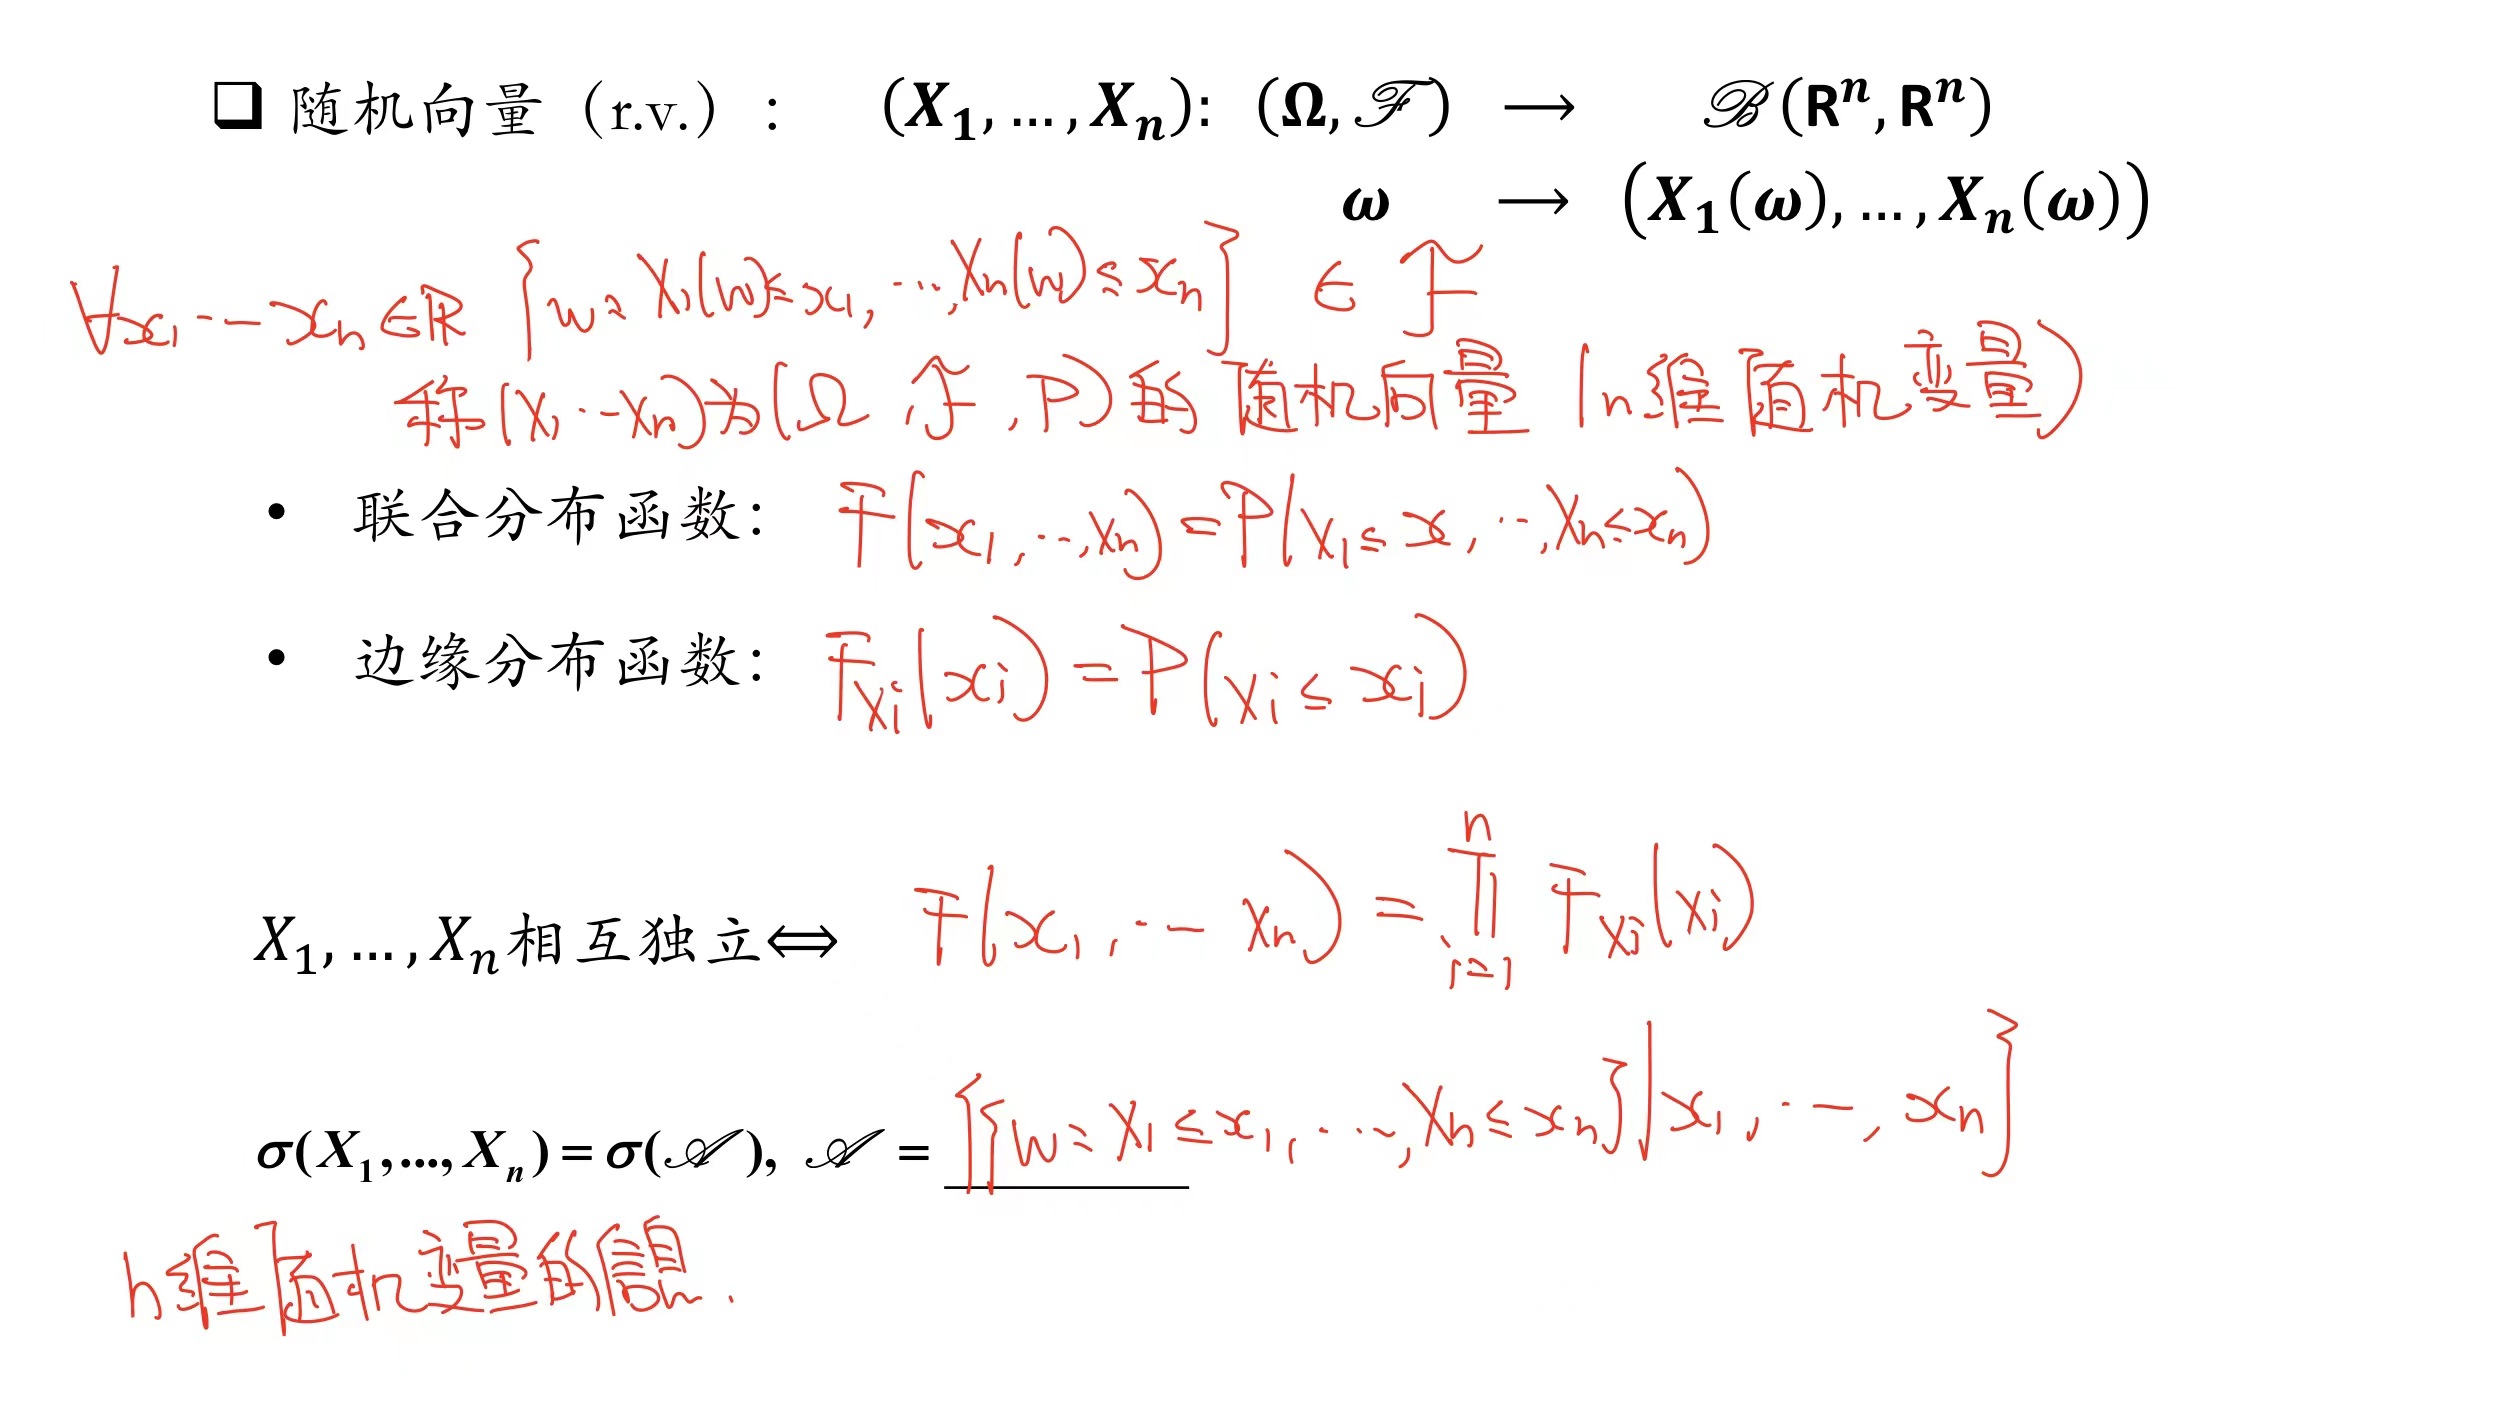 ❑ 随机向量（r.v.）： (X₁, …, Xₙ): (Ω, ℱ) ⟶ ℬ(Rⁿ, Rⁿ)
ω ⟶ (X₁(ω), …, Xₙ(ω))
∀x₁ … xₙ ∈ R {ω: X₁(ω) ≤ x₁, …, Xₙ(ω) ≤ xₙ} ∈ ℱ
称 (X₁ … Xₙ) 为 (Ω, ℱ, P) 的 随机向量 (n维随机变量)
• 联合分布函数: F(x₁, …, xₙ) = P(X₁ ≤ x, …, Xₙ ≤ xₙ)
• 边缘分布函数: F_{Xᵢ}(xᵢ) = P(Xᵢ ≤ xᵢ)
X₁, … , Xₙ 相互独立 ⟺ F(x₁, … xₙ) = ∏ᵢ₌₁ⁿ F_{Xᵢ}(xᵢ)
σ(X₁,…, Xₙ) = σ(𝒜), 𝒜 = {{ω: X₁ ≤ x₁, …, Xₙ ≤ xₙ} | x₁, …, xₙ}
n维随机变量的信息.